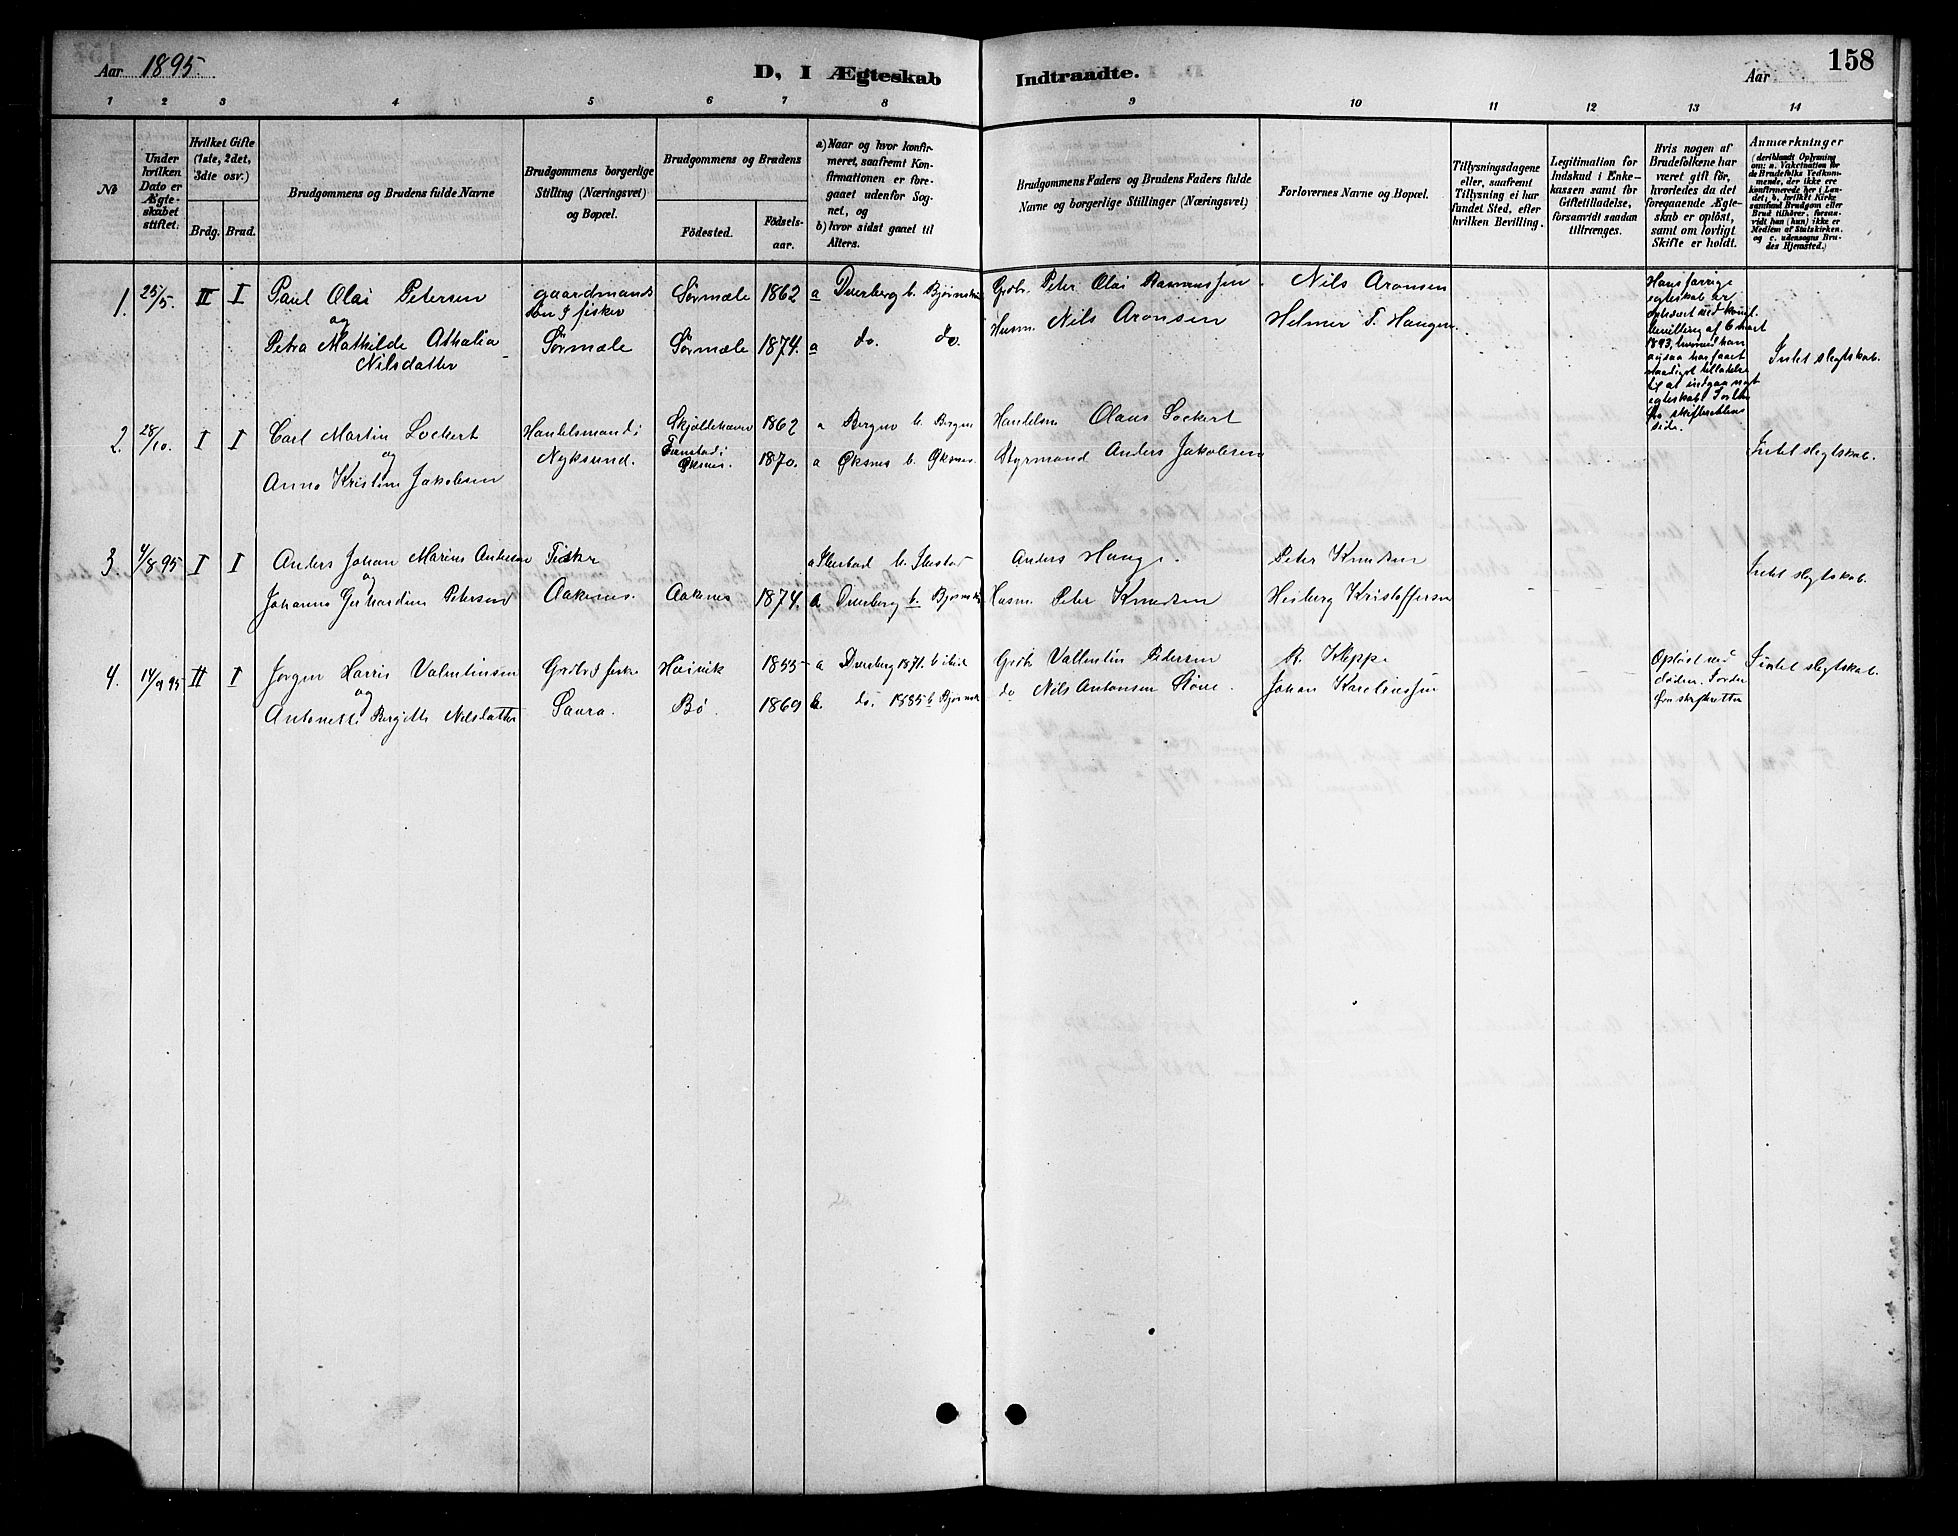 Aar 1895.
D, I Ægteskab Indtraadte.
Aar
158
1 2 3 4 5 6 7 8 9 10 11 12 13 14
No
Under hvilken Dato er Ægteskabet stiftet.
Hvilket Gifte (1ste, 2det, 3die osv.)
Brdg. Brud.
Brudgommens og Brudens fulde Navne
Brudgommens borgerlige Stilling (Næringsvei) og Bopæl.
Brudgommens og Brudens
Födested.
Födsels-aar.
a) Naar og hvor konfirmeret, saafremt Konfirmationen er foregaaet udenfor Sognet, og
b) hvor sidst gaaet til Alters.
Brudgommens Faders og Brudens Faders fulde Navne og borgerlige Stillinger (Næringsvei)
Forlovernes Navne og Bopæl.
Tillysningsdagene eller, saafremt Tillysning ei har fundet Sted, efter hvilken Bevilling.
Legitimation for Indskud i Enkekassen samt for Giftetilladelse, forsaavidt saadan tiltrænges.
Hvis nogen af Brudefolkene har været gift för, hvorledes da det foregaaende Ægteskab er oplöst, samt om lovligt Skifte er holdt.
Anmærkninger
(deriblandt Oplysning om: a. Vakcination for de Brudefolks Vedkommende, der ikke ere konfirmerede her i Landet; b. hvilket Kirkesamfund Brudgom eller Brud tilhörer, forsaavidt han (hun) ikke er Medlem af Statskirken, og c. udensogns Brudes Hjemsted.)
1. 25/5. II I Paul Olai Petersen gaardmands Sørmæle 1862 a Dverberg b. Bjørnsk Grdbr. Peter Olai Rasmussen Nils Aronsen
og søn & fisker Husm. Nils Aronsen Helmer T. Haugen
Petra Mathilde Athalia Sørmæle Sørmæle 1874. a do. do.
Nilsdatter
Hans forrige
egteskab er
opløsert med kongl.
bevilling af 6 mart
1893, hvorved han
ogsaa har faaet
naadigst tilladelse
til at indgaa nyt
egteskab.
side.
Intet slegtskab.
2. 28/10. I I Carl Martin Lockert Handelsmand i 1862 a Bergen b. Bergen Handelsm Olaus Lockert
og Nyksund. Øksnes. 1870. a Øksnes b. Øksnes. Styrmand Anders Jakobsen
Anna Kristine Jakobsen
Intet slegtskab.
3 4/8 95 I I Anders Johan Marius Andersen Fisker a Ibestad b. Ibestad Anders Hauge. Peter Knudsen
og
Johanna Gerhardine Petersen Aaknes. Aaknes 1874. a Dverberg b. Bjørnsk Husm. Peter Knudsen Heiberg Kristoffersen
Intet slegtskab.
4. 14/9 95 II I Jørgen Harris Valentinsen Grdbr & fisker Høivik 1855 a Dverberg 1871. b ibid Grdbr Vallentin Pedersen R. Kleppe
og
Antonette Bergitte Nilsdatter Saura. Bø 1869 b. do. 1885 b Bjørnsk do Nils Antonsen Johan Kareliussen
Opløst ved
døden.
Intet slegtskab.